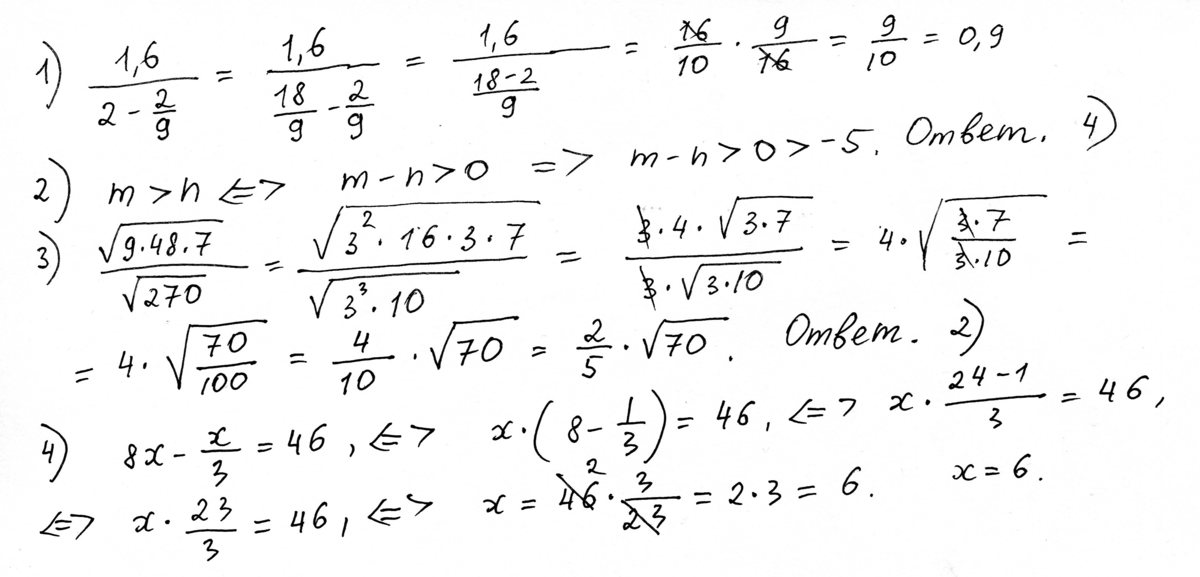 1) 1,6/(2 - 2/9) = 1,6/(18/9 - 2/9) = 1,6/((18-2)/9) = 16/10 · 9/16 = 9/10 = 0,9
2) m > n <=> m - n > 0 => m - n > 0 > -5. Ответ. 4)
3) √(9·48·7)/√270 = √(3²·16·3·7)/√(3³·10) = 3·4·√(3·7)/(3·√(3·10)) = 4·√(3·7/(3·10)) =
= 4·√(70/100) = 4/10·√70 = 2/5·√70. Ответ. 2)
4) 8x - x/3 = 46, <=> x·(8 - 1/3) = 46, <=> x·(24-1)/3 = 46,
<=> x·23/3 = 46, <=> x = 46 2·3/23 = 2·3 = 6. x = 6.